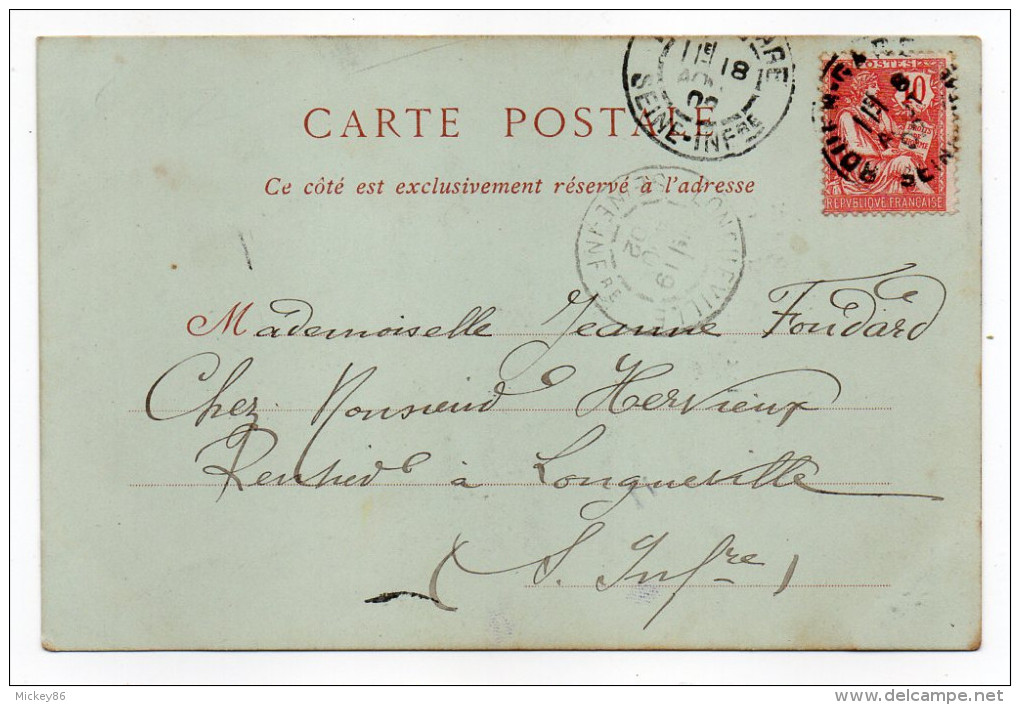 CARTE POSTALE
Ce côté est exclusivement réservé à l'adresse
POSTES
10
REPVBLIQVE FRANÇAISE
ROUEN-GARE
SEINE-INFRE
LONGUEVILLE
SEINE-INFRE
19
02
Mademoiselle Jeanne Foudard
Chez Monsieur Hervieux
Rentier à Longueville
(S. Infre)
Mickey86
delcampe.net